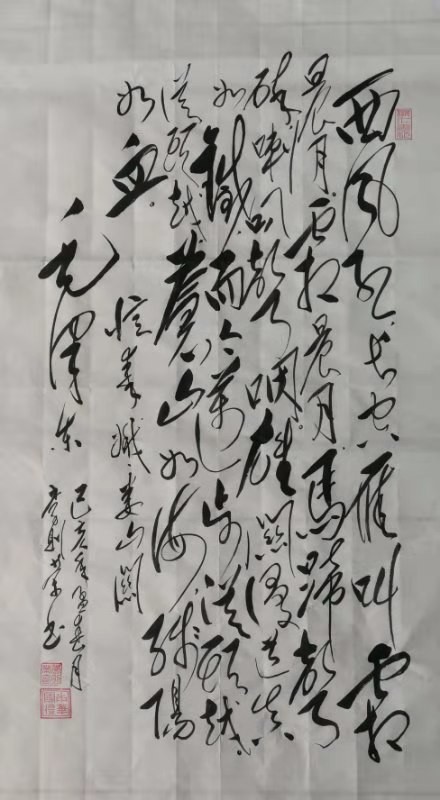 西風烈長空雁叫霜
晨月霜晨月馬蹄聲
碎喇叭聲咽雄關漫道真
如鐵而今邁步從頭越
從頭越蒼山如海殘陽
如血
憶秦娥婁山關
毛澤東
己亥年陽春月
书